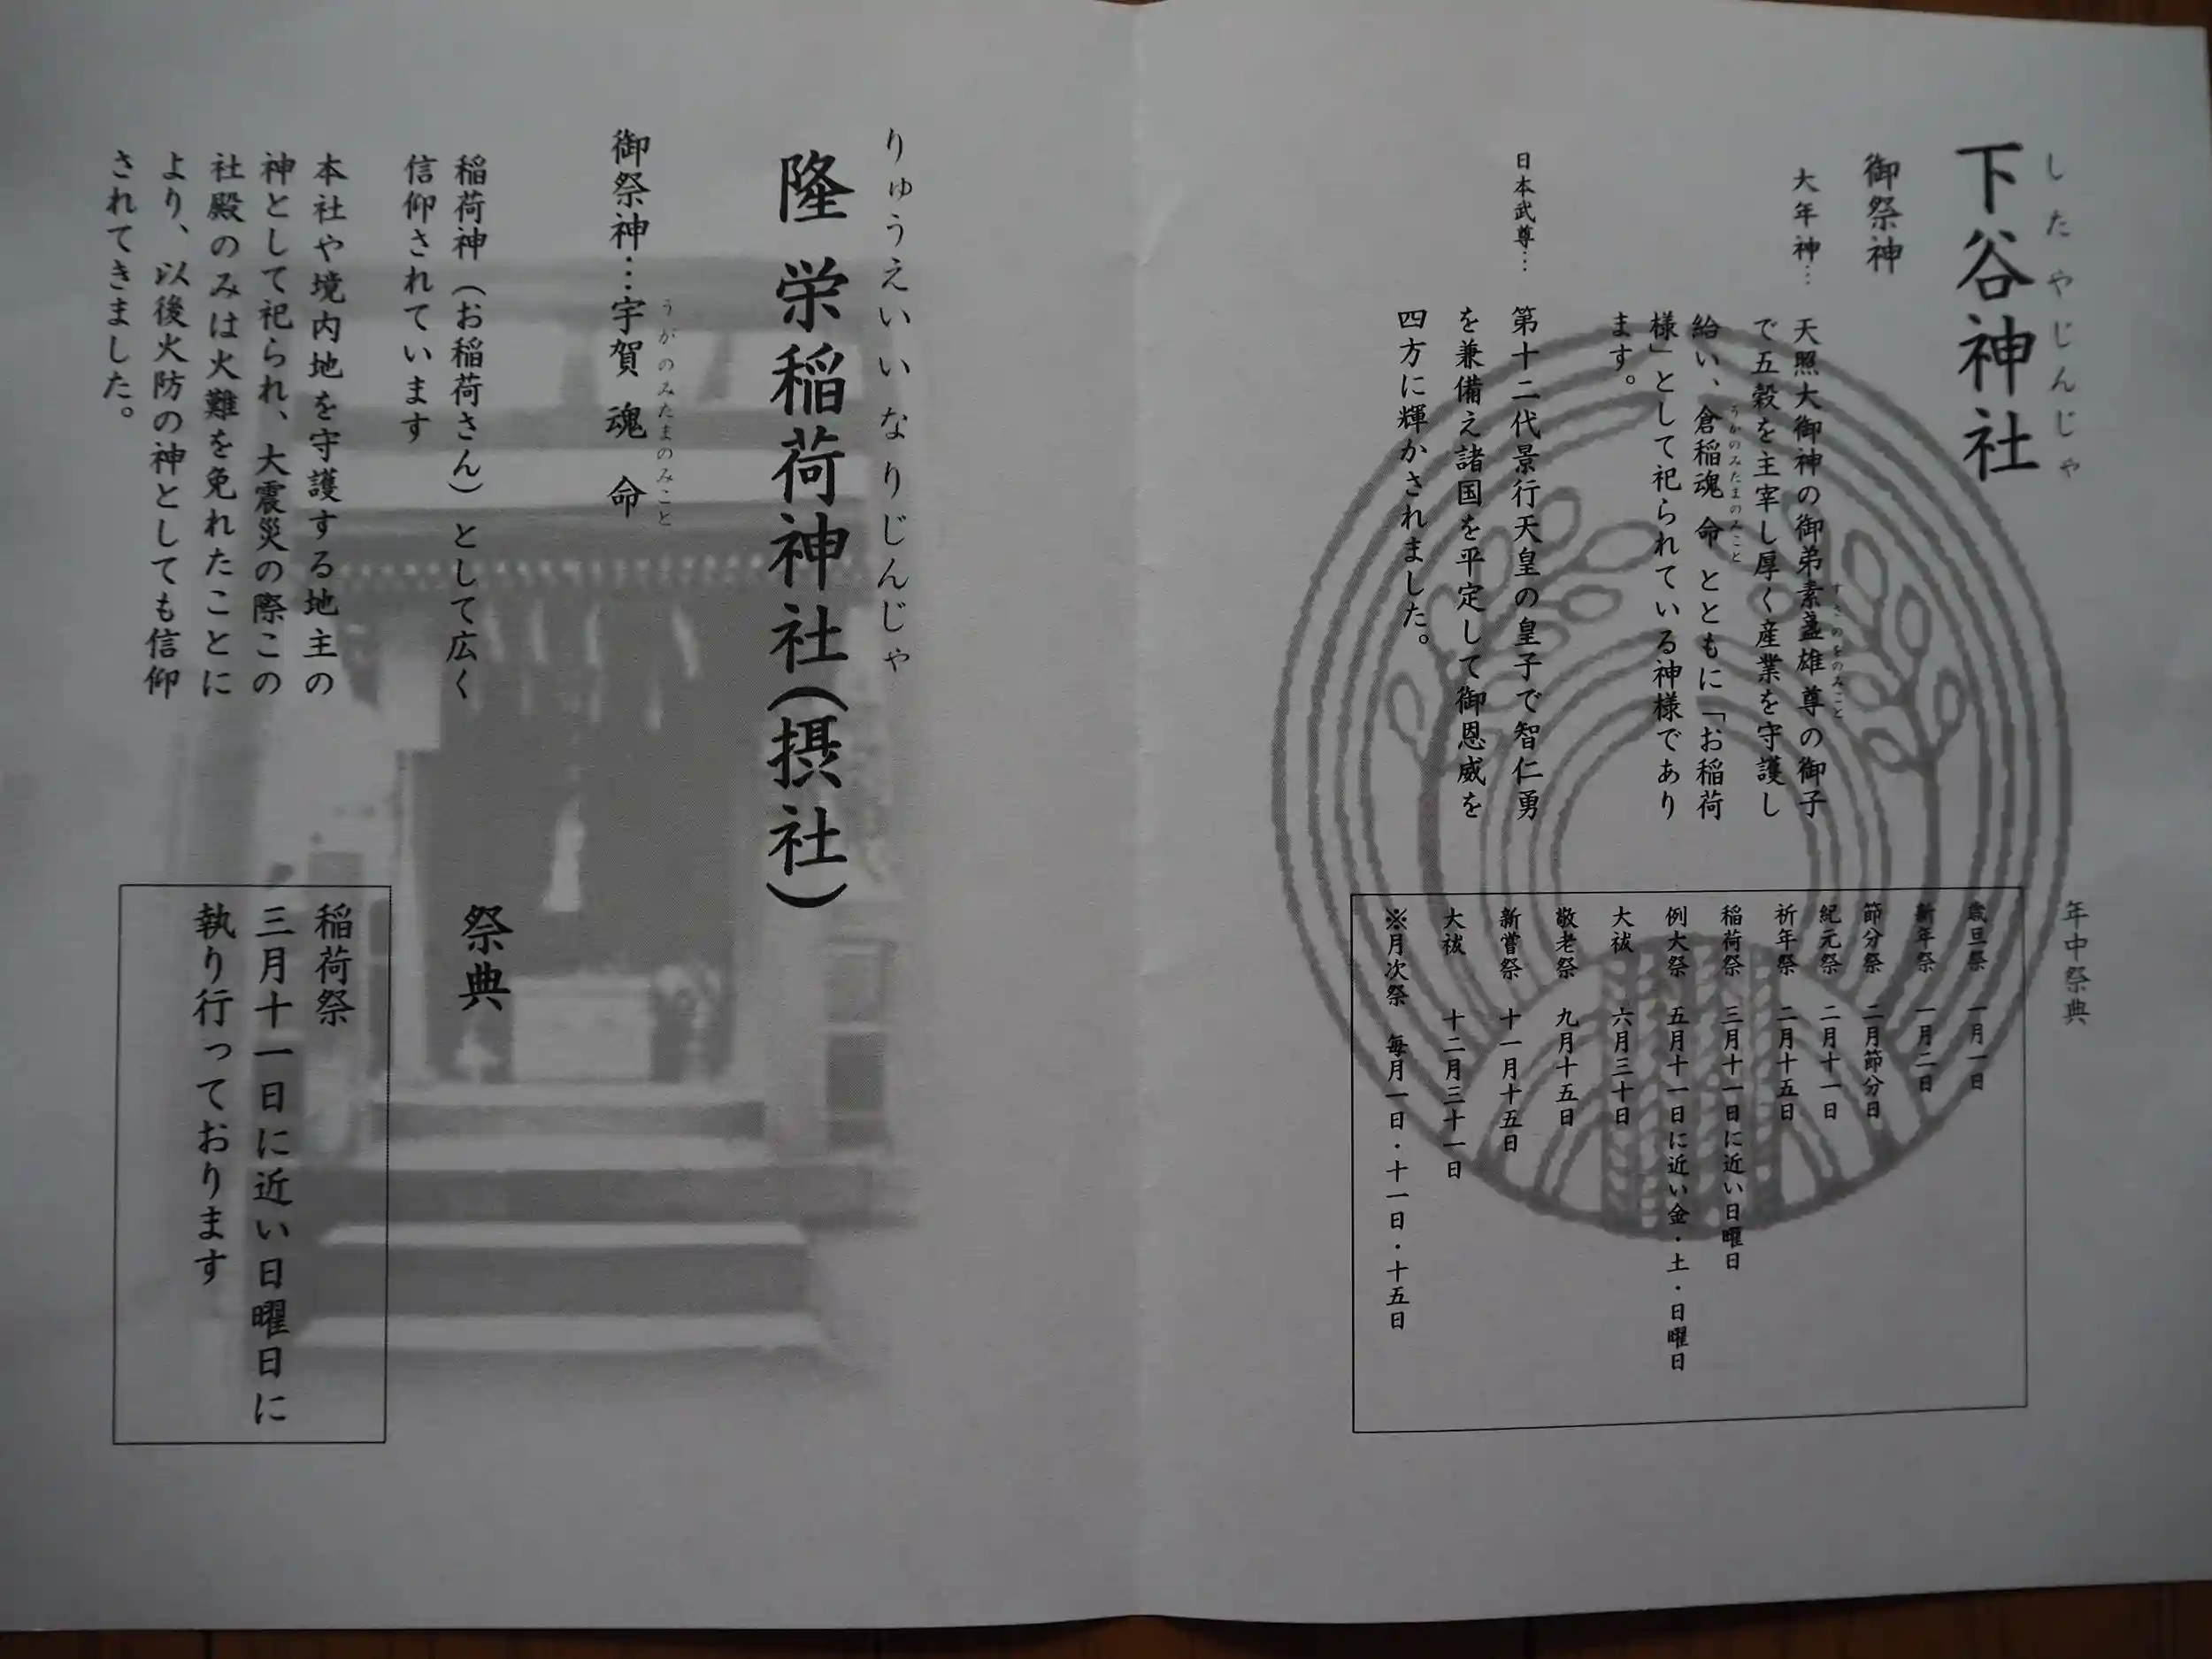 したやじんじゃ
下谷神社
御祭神
大年神…
天照大御神の御弟素盞雄尊の御子
すさのをのみこと
で五穀を主宰し厚く産業を守護し
給い、倉稲魂命とともに「お稲荷
うかのみたまのみこと
様」として祀られている神様であり
ます。
日本武尊…
第十二代景行天皇の皇子で智仁勇
を兼備え諸国を平定して御恩威を
四方に輝かされました。
年中祭典
歳旦祭 一月一日
新年祭 一月二日
節分祭 二月節分日
紀元祭 二月十一日
祈年祭 二月十五日
稲荷祭 三月十一日に近い日曜日
例大祭 五月十一日に近い金・土・日曜日
大祓 六月三十日
敬老祭 九月十五日
新嘗祭 十一月十五日
大祓 十二月三十一日
※月次祭 毎月一日・十一日・十五日
りゅうえいいなりじんじゃ
隆栄稲荷神社(摂社)
御祭神…宇賀魂命
うがのみたまのみこと
稲荷神(お稲荷さん)として広く
信仰されています
本社や境内地を守護する地主の
神として祀られ、大震災の際この
社殿のみは火難を免れたことに
より、以後火防の神としても信仰
されてきました。
祭典
稲荷祭
三月十一日に近い日曜日に
執り行っております